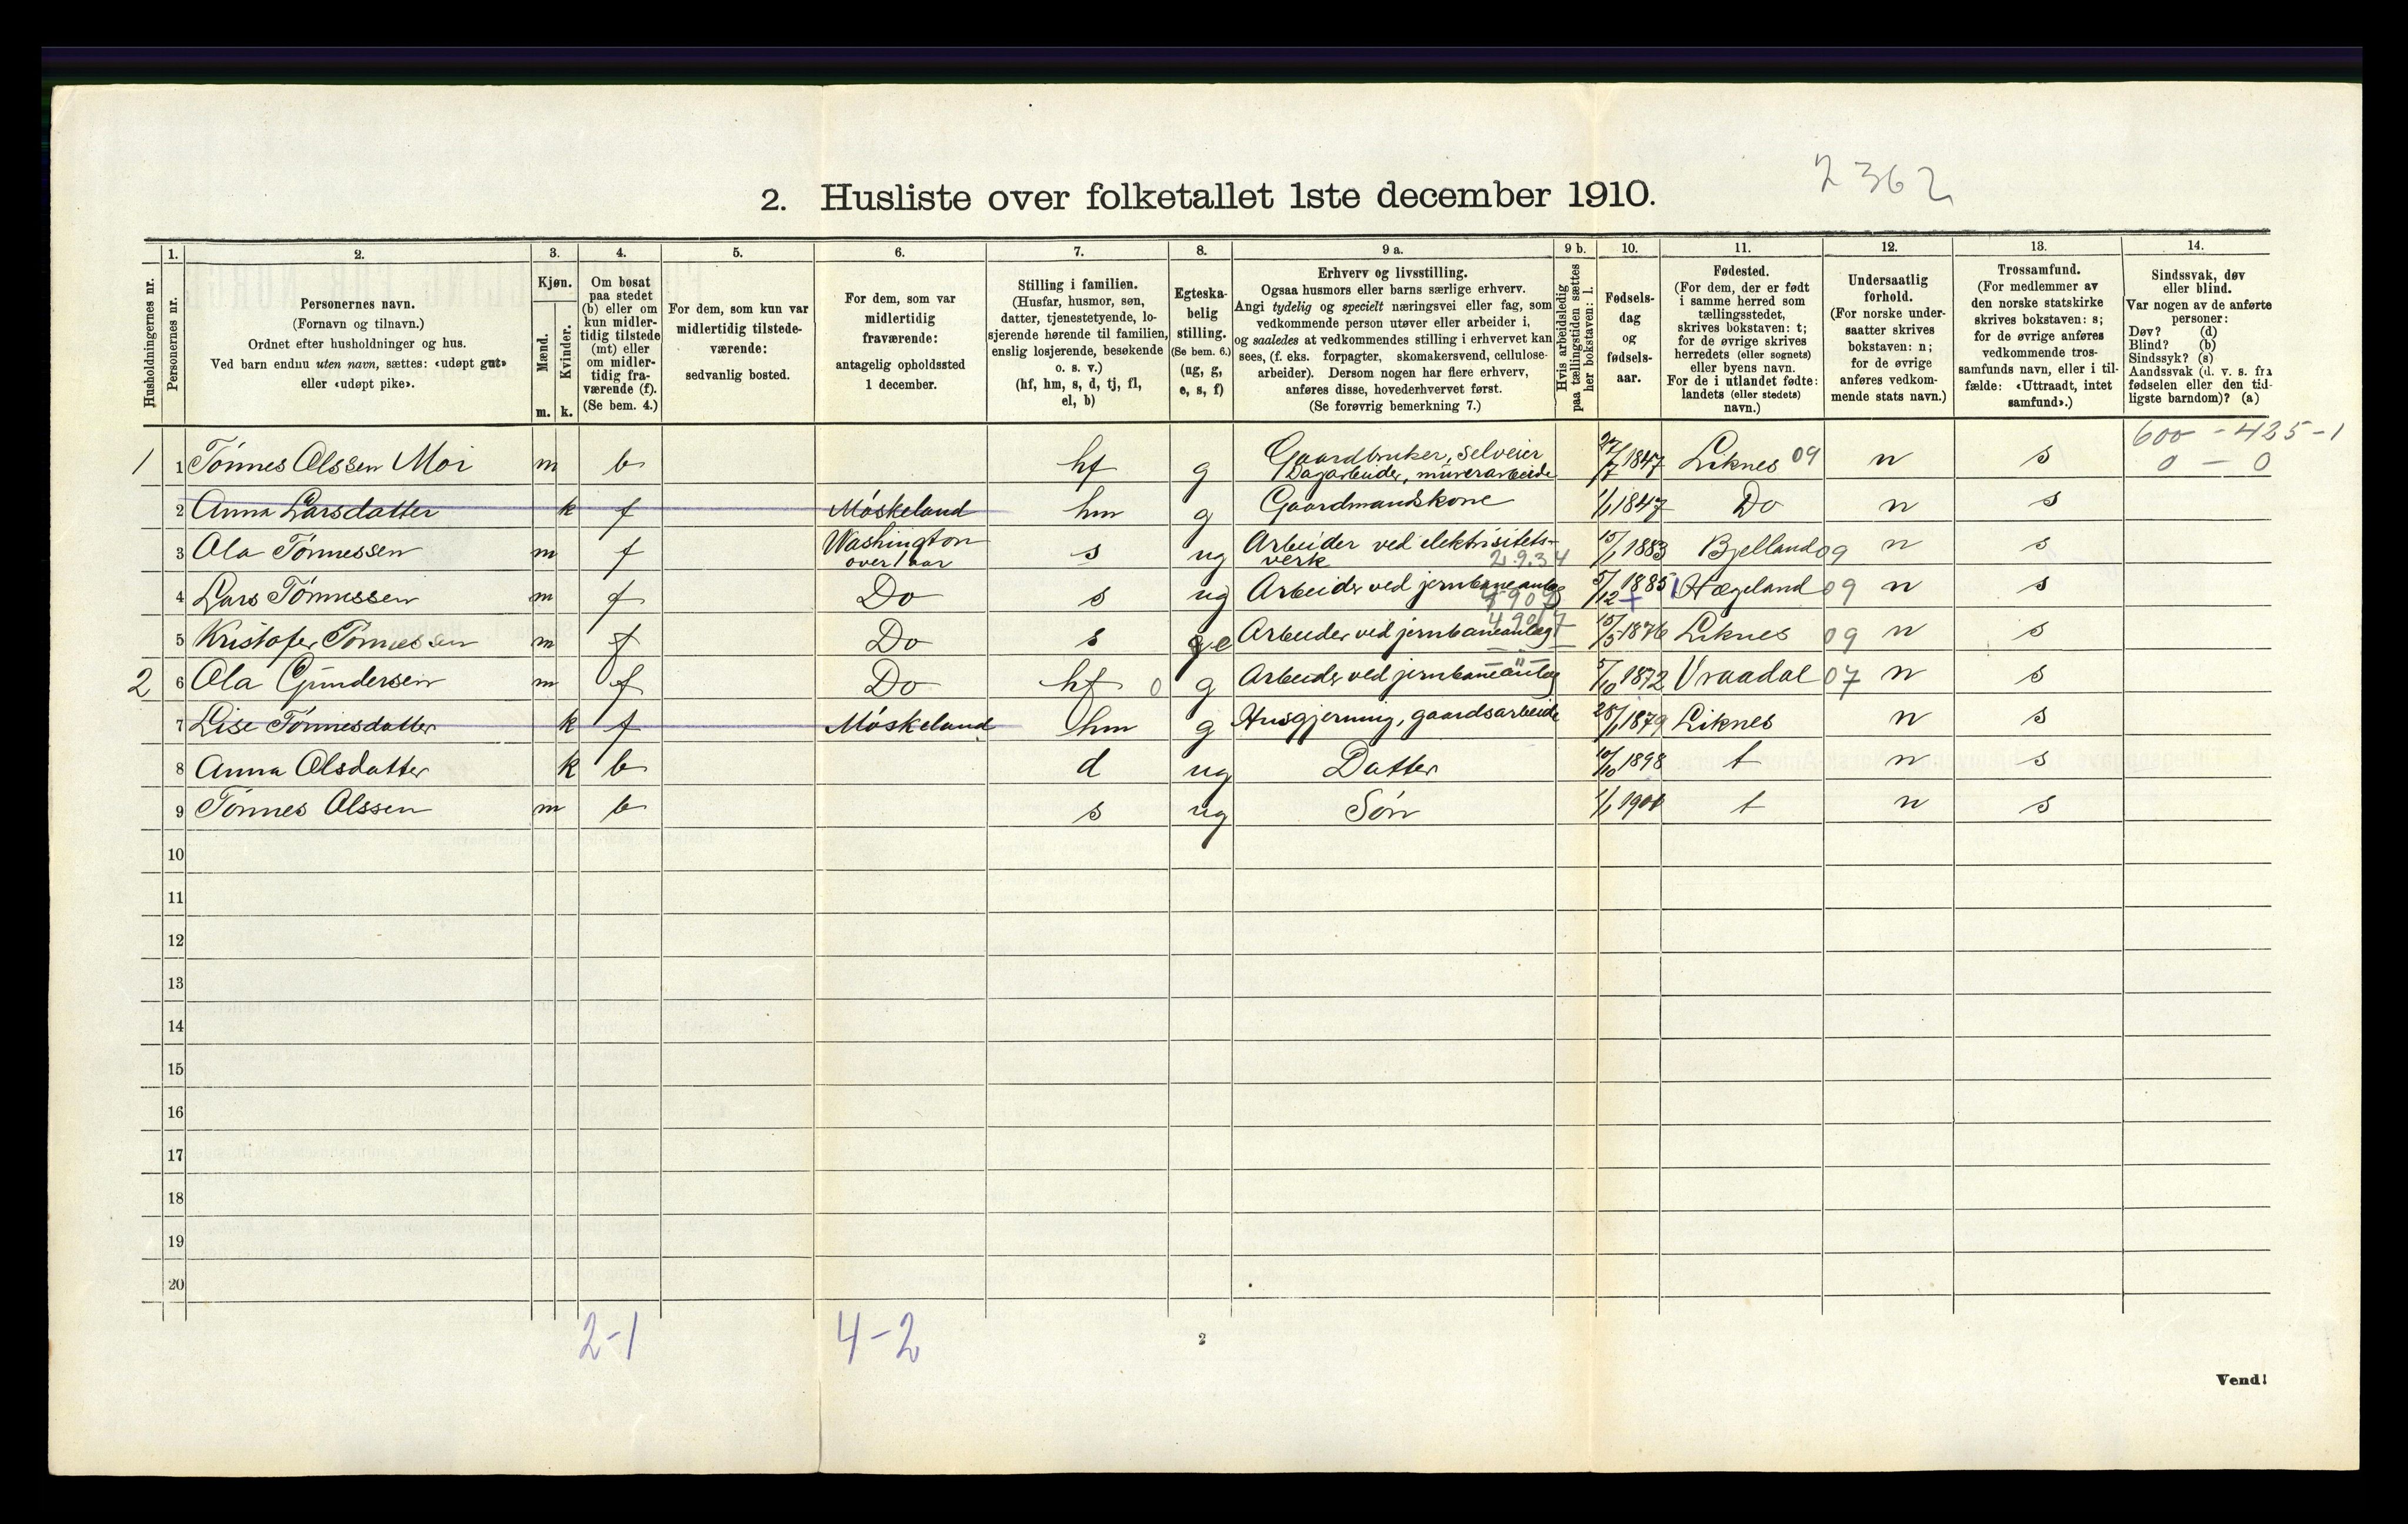 2362
2. Husliste over folketallet 1ste december 1910.
Husholdningernes nr.
1. Personernes nr.
2. Personernes navn.
(Fornavn og tilnavn.)
Ordnet efter husholdninger og hus.
Ved barn endnu uten navn, sættes: «udøpt gut»
eller «udøpt pike».
3. Kjøn.
Mænd. m.
Kvinder. k.
4. Om bosat
paa stedet
(b) eller om
kun midler-
tidig tilstede
(mt) eller
om midler-
tidig fra-
værende (f).
(Se bem. 4.)
5. For dem, som kun var
midlertidig tilstede-
værende:
sedvanlig bosted.
6. For dem, som var
midlertidig
fraværende:
antagelig opholdssted
1 december.
7. Stilling i familien.
(Husfar, husmor, søn,
datter, tjenestetyende, lo-
sjerende hørende til familien,
enslig losjerende, besøkende
o. s. v.)
(hf, hm, s, d, tj, fl,
el, b)
8. Egteska-
belig
stilling.
(Se bem. 6.)
(ug, g,
e, s, f)
9 a. Erhverv og livsstilling.
Ogsaa husmors eller barns særlige erhverv.
Angi tydelig og specielt næringsvei eller fag, som
vedkommende person utøver eller arbeider i,
og saaledes at vedkommendes stilling i erhvervet kan
sees, (f. eks. forpagter, skomakersvend, cellulose-
arbeider). Dersom nogen har flere erhverv,
anføres disse, hovederhvervet først.
(Se forøvrig bemerkning 7.)
9 b. Hvis arbeidsledig
paa tællingstiden sættes
her bokstaven: l.
10. Fødsels-
dag
og
fødsels-
aar.
11. Fødested.
(For dem, der er født
i samme herred som
tællingsstedet,
skrives bokstaven: t;
for de øvrige skrives
herredets (eller sognets)
eller byens navn.
For de i utlandet fødte:
landets (eller stedets)
navn.)
12. Undersaatlig
forhold.
(For norske under-
saatter skrives
bokstaven: n;
for de øvrige
anføres vedkom-
mende stats navn.)
13. Trossamfund.
(For medlemmer av
den norske statskirke
skrives bokstaven: s;
for de øvrige anføres
vedkommende tros-
samfunds navn, eller i til-
fælde: «Uttraadt, intet
samfund».)
14. Sindssvak, døv
eller blind.
Var nogen av de anførte
personer:
Døv? (d)
Blind? (b)
Sindssyk? (s)
Aandssvak (d. v. s. fra
fødselen eller den tid-
ligste barndom)? (a)
600 - 425 - 1
0 - 0
1 1 Tønnes Olssen Moi m b hf g Gaardbruker, selveier Dagarbeider, murerarbeide 27/7 1847 Liknes 09 n s
2 Anna Larsdatter k f Møskeland hm g Gaardmandskone 1/1 1847 Do n s
3 Ola Tønnessen m f Washington over 1 aar s ug Arbeider ved elektrisitets- verk 2.9.34 15/1 1883 Bjelland 09 n s
4 Lars Tønnessen m f Do s ug Arbeider ved jernbaneanlæg 5/12 1885 Hægeland 09 n s
5 Kristofer Tønnessen m f Do s e Arbeider ved jernbaneanlæg 4901 15/5 1876 Liknes 09 n s
2 6 Ola Gundersen m f Do hf 0 g Arbeider ved jernbaneanlæg 5/10 1872 Vraadal 07 n s
7 Lise Tønnesdatter k f Møskeland hm g Husgjerning, gaardsarbeide 28/1 1879 Liknes n s
8 Anna Olsdatter k b d ug Datter 10/10 1898 t n s
9 Tønnes Olssen m b s ug Søn 1/1 1901 t n s
10
11
12
13
14
15
16
17
18
19
20
2-1 4-2
2
Vend!